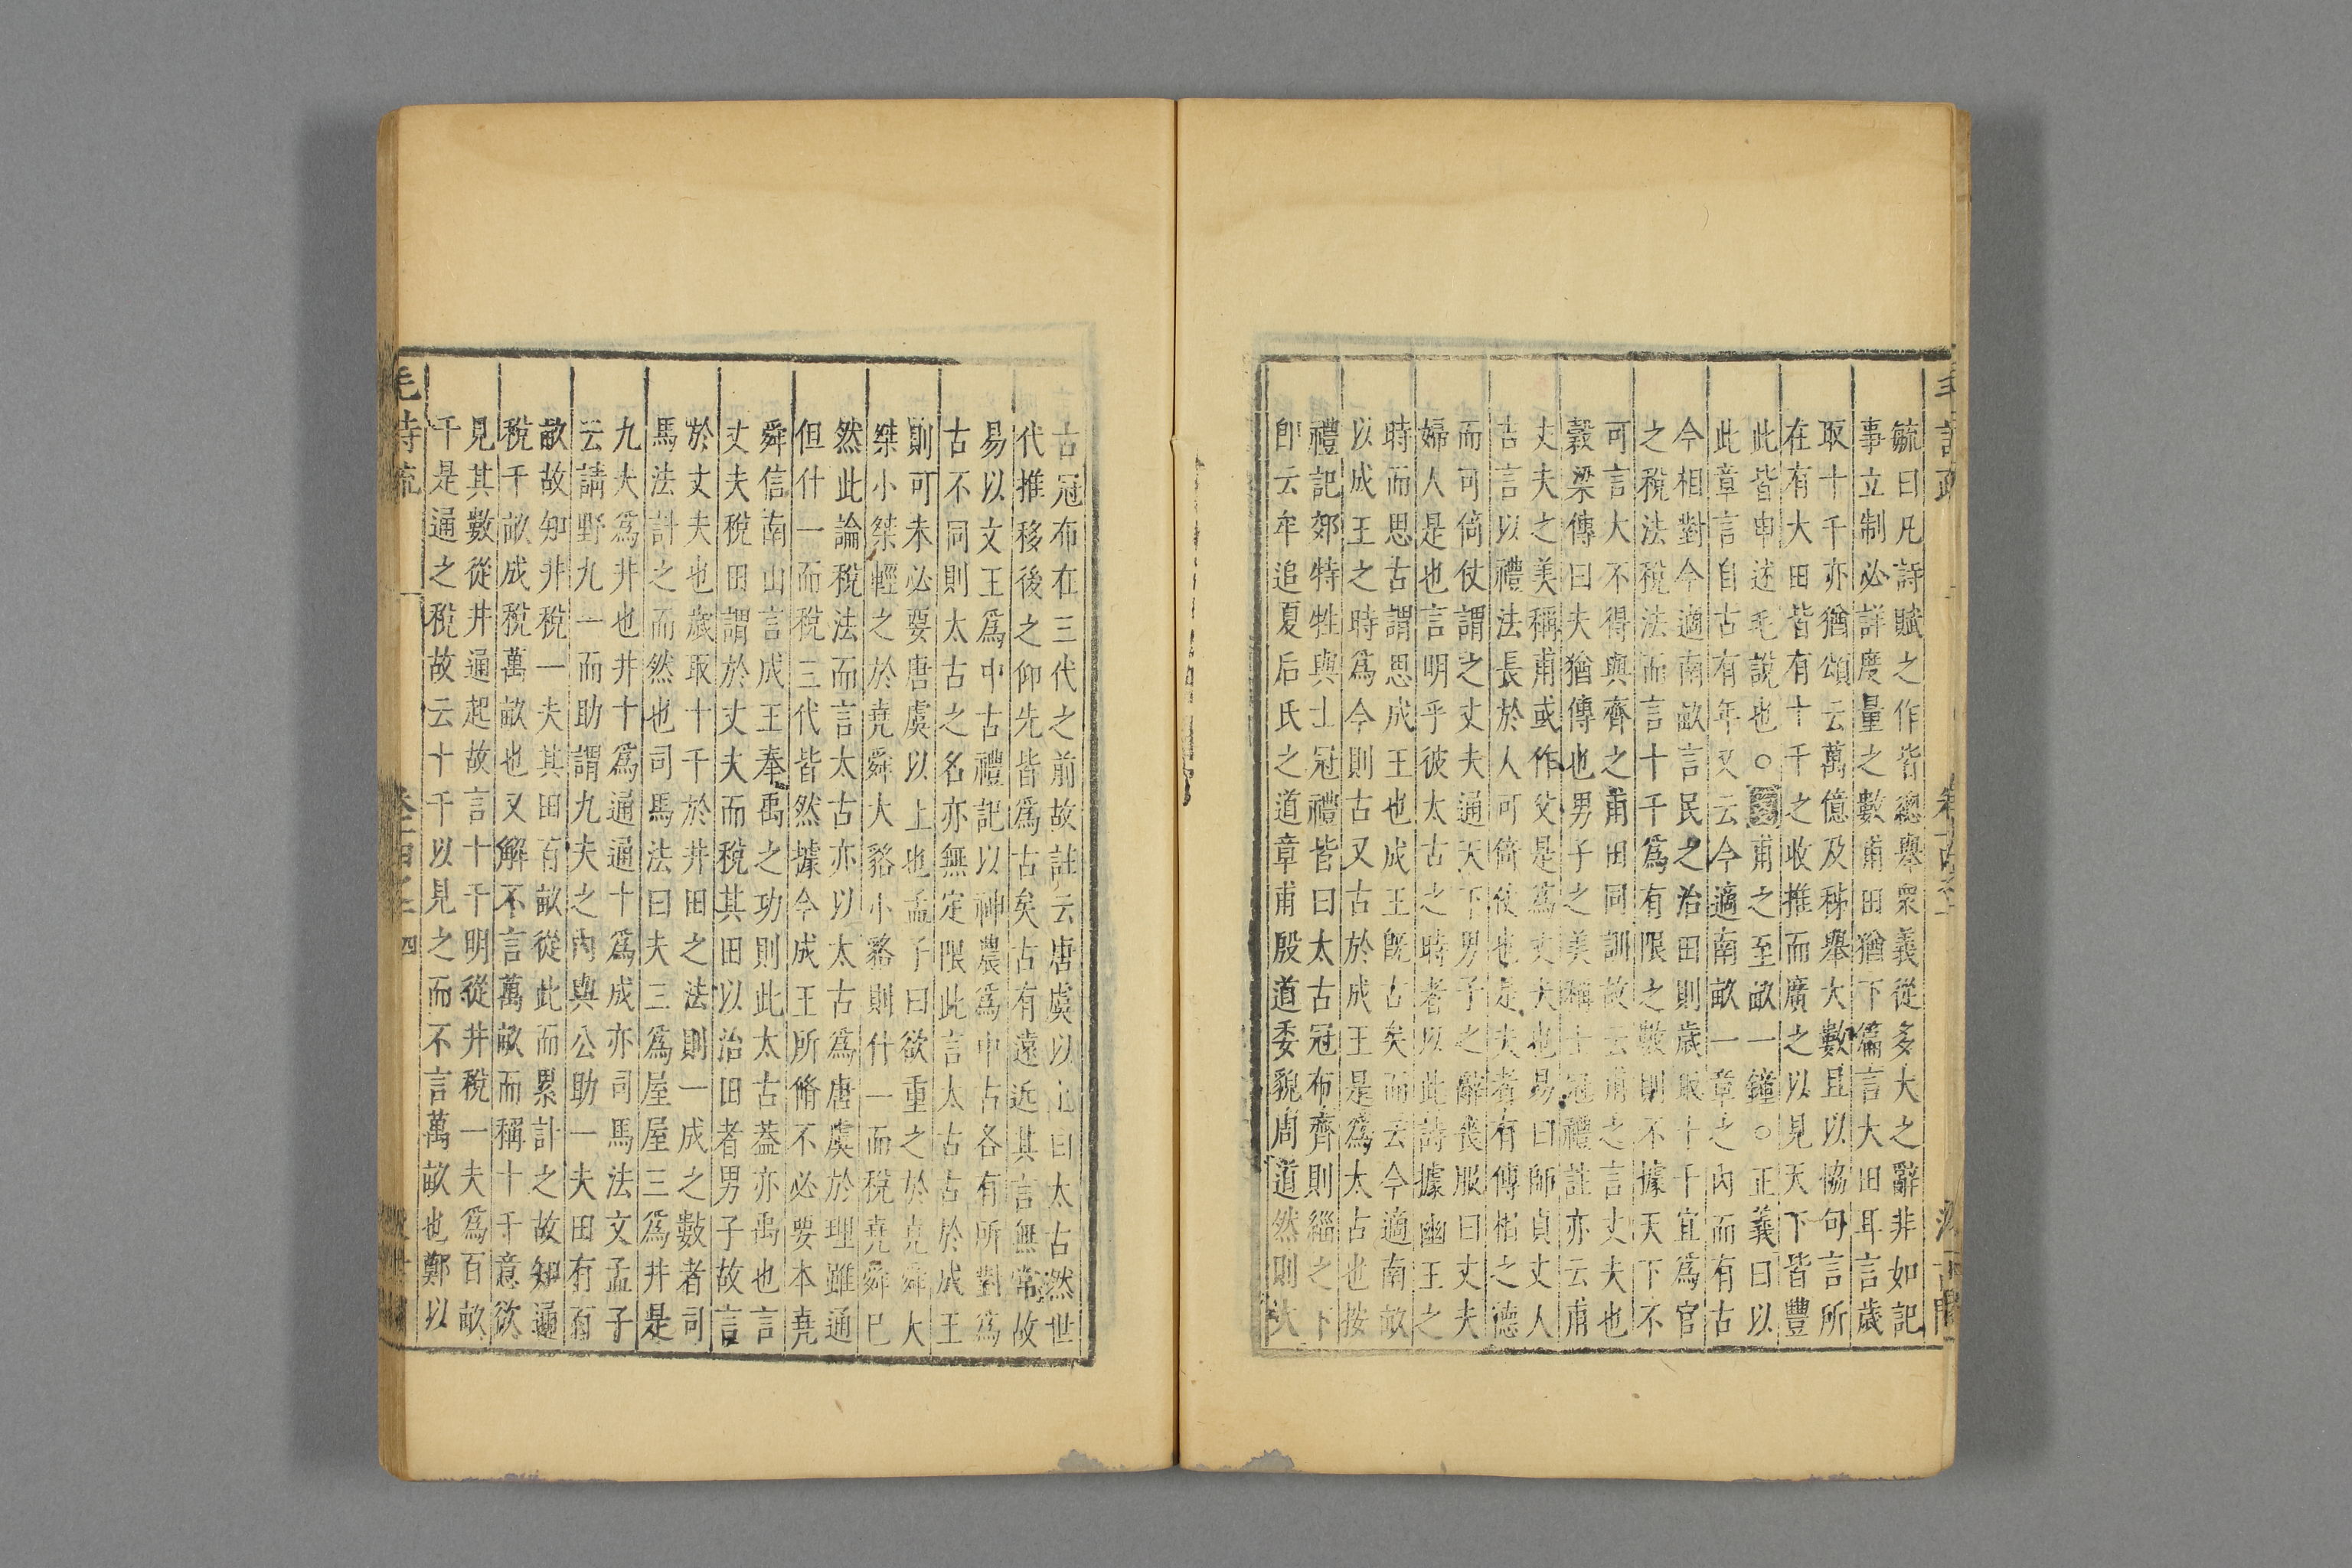 毓曰凡詩賦之作皆總舉衆義從多大之辭非如記
事立制必詳度量之數甫田猶下篇言大田耳言歲
取十千亦猶頌云萬億及秭舉大數且以協句言所
在有大田皆有十千之收推而廣之以見天下皆豐
此皆申述毛說也○甫之至畝一鐘○正義曰以
此章言自古有年又云今適南畝一章之內而有古
今相對今適南畝言民之治田則歲取十千宜爲官
之稅法稅法而言十千爲有限之數則不據天下不
可言大不得與齊之甫田同訓故云甫之言丈夫也
穀梁傳曰夫猶傳也男子之美稱士冠禮註亦云甫
丈夫之美稱甫或作父是爲丈夫也易曰師貞丈人
吉言以禮法長於人可倚仗也是夫者有傅相之德
而可倚仗謂之丈夫通天下男子之辭喪服曰丈夫
婦人是也言明乎彼太古之時者以此詩據幽王之
時而思古謂思成王也成王既古矣而云今適南畝
以成王之時爲今則古又古於成王是爲太古也按
禮記郊特牲與士冠禮皆曰太古冠布齊則緇之下
卽云牟追夏后氏之道章甫殷道委貌周道然則大
古冠布在三代之前故註云唐虞以上曰太古然世
代推移後之仰先皆爲古矣古有遠近其言無常故
易以文王爲中古禮記以神農爲中古各有所對爲
古不同則太古之名亦無定限此言太古古於成王
則可未必要唐虞以上也孟子曰欲重之於堯舜大
桀小桀輕之於堯舜大貉小貉則什一而稅堯舜已
然此論稅法而言太古亦以太古爲唐虞於理雖通
但什一而稅三代皆然據今成王所脩不必要本堯
舜信南山言成王奉禹之功則此太古蓋亦禹也言
丈夫稅田謂於丈夫而稅其田以治田者男子故言
於丈夫也歲取十千於井田之法則一成之數者司
馬法計之而然也司馬法曰夫三爲屋屋三爲井是
九夫爲井也井十爲通通十爲成亦司馬法文孟子
云請野九一而助謂九夫之內與公助一夫田有百
畝故知井稅一夫其田百畝從此而累計之故知通
稅千畝成稅萬畝也又解不言萬畝而稱十千意欲
見其數從井通起故言十千明從井稅一夫爲百畝
千是通之稅故云十千以見之而不言萬畝也鄭以
毛詩疏
四